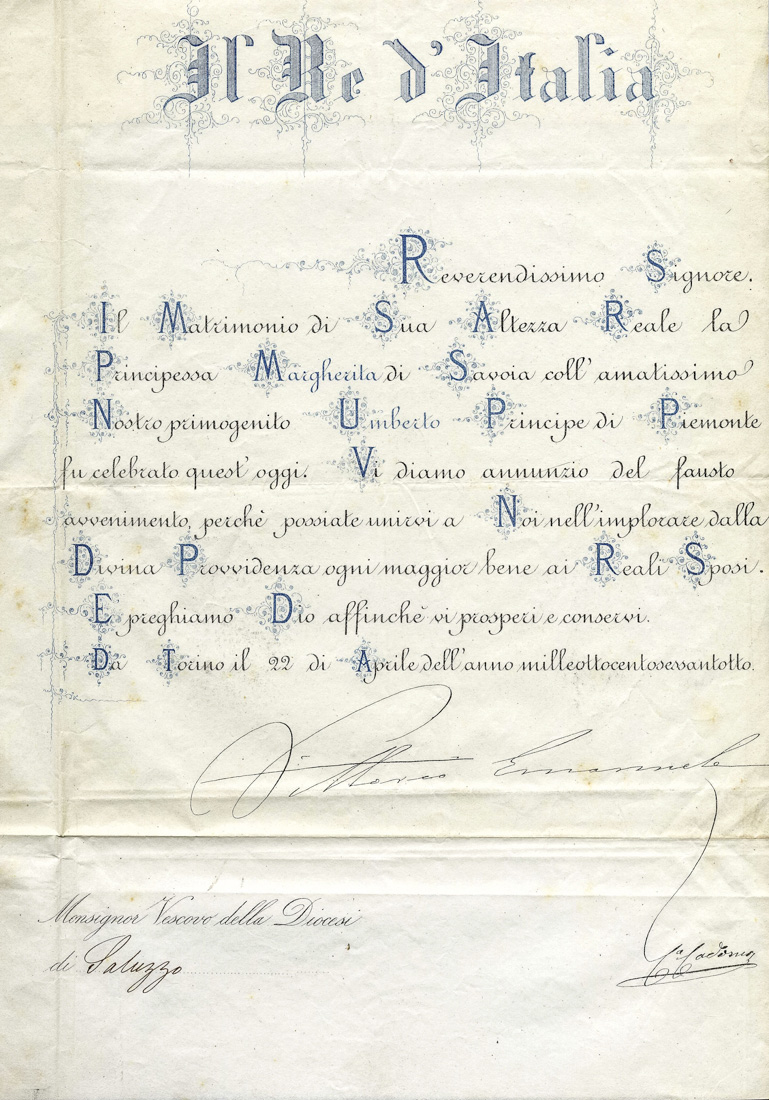 Il Re d'Italia
Reverendissimo Signore.
Il Matrimonio di Sua Altezza Reale la
Principessa Margherita di Savoia coll'amatissimo
Nostro primogenito Umberto Principe di Piemonte
fu celebrato quest'oggi. Vi diamo annunzio del fausto
avvenimento, perchè possiate unirvi a Noi nell'implorare dalla
Divina Provvidenza ogni maggior bene ai Reali Sposi.
E preghiamo Dio affinchè vi prosperi e conservi.
Da Torino il 22 di Aprile dell'anno milleottocentosessantotto.
Vittorio Emanuele
Monsignor Vescovo della Diocesi
di Saluzzo
Cadorna